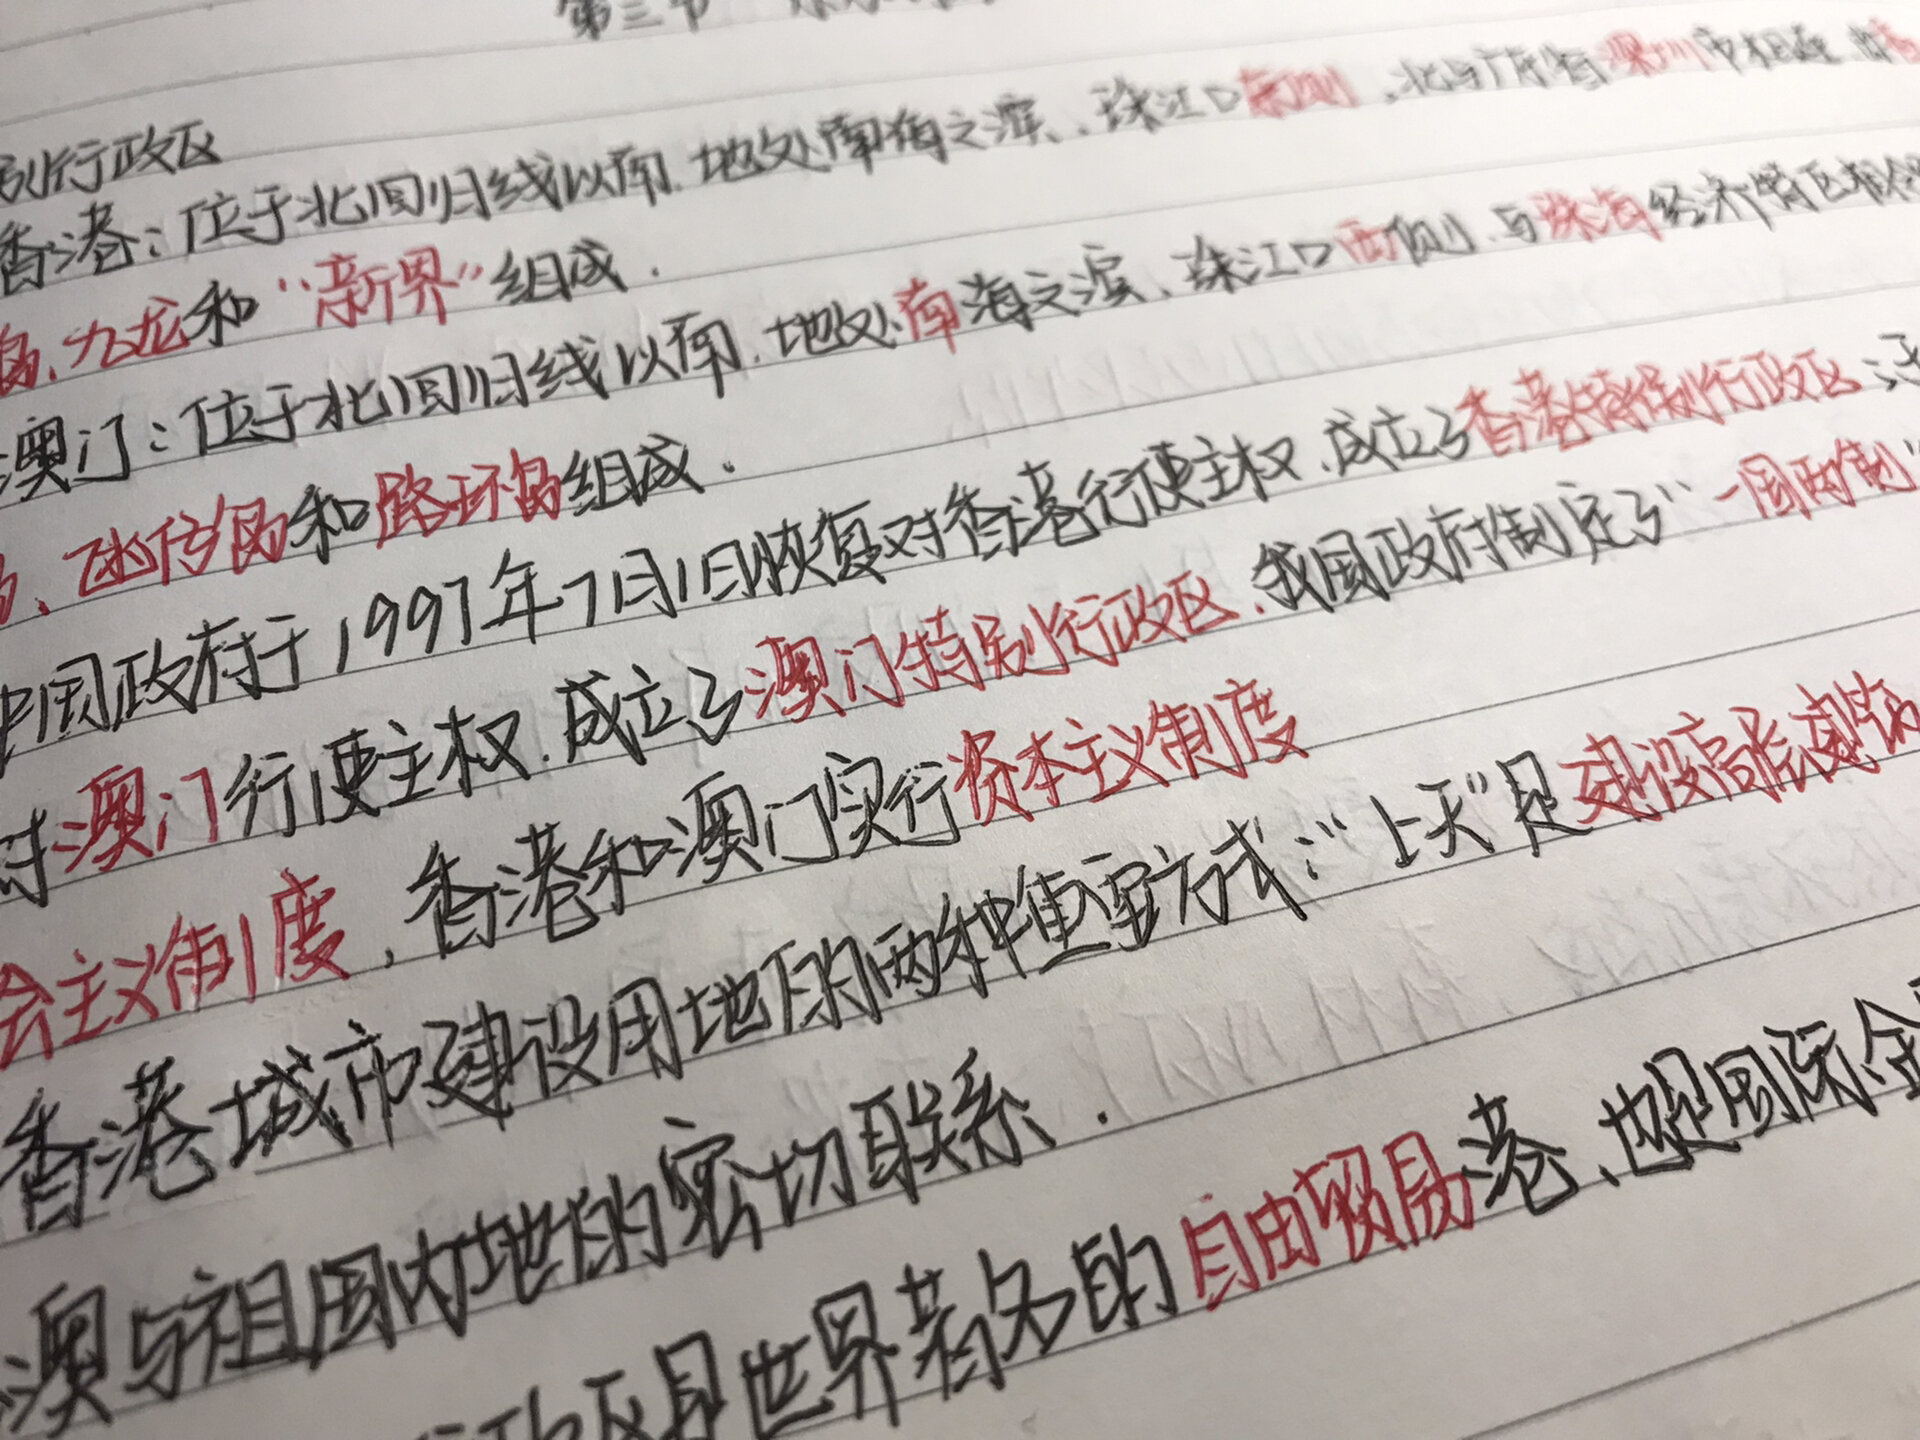 第三节
别行政区
香港:位于北回归线以南,地处南海之滨、珠江口东侧,北与广东省深圳市相连,由香
岛、九龙和“新界”组成.
澳门:位于北回归线以南,地处南海之滨、珠江口西侧,与珠海经济特区相
岛、氹仔岛和路环岛组成.
中国政府于1997年7月1日恢复对香港行使主权,成立了香港特别行政区;于
对澳门行使主权,成立了澳门特别行政区,我国政府制定了“一国两制”
会主义制度,香港和澳门实行资本主义制度
香港城市建设用地的两种重要方式:“上天”是建设高层建筑
澳与祖国内地的密切联系.
行政区是世界著名的自由贸易港、也是国际金